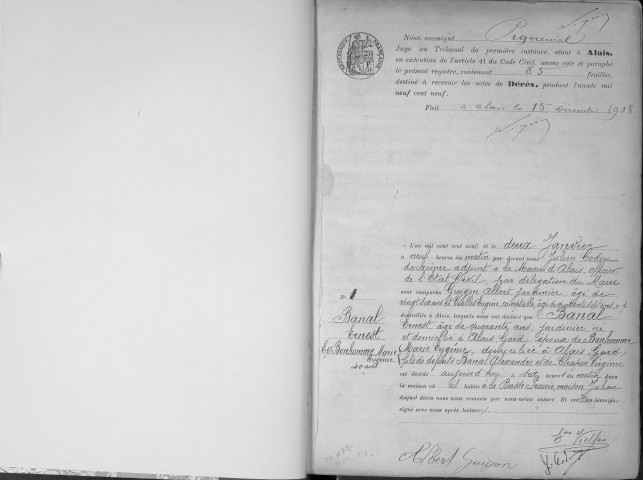 Nous, soussigné Piquemal
Juge au Tribunal de première instance, séant à Alais,
en exécution de l'article 41 du Code Civil, avons coté et paraphé
le présent registre, contenant 85 feuilles,
destiné à recevoir les actes de Décès, pendant l'année mil
neuf cent neuf.
Fait à Alais le 15 Décembre 1908
RÉPUBLIQUE FRANÇAISE
L'an mil neuf cent neuf, et le deux Janvier
à neuf heures du matin par devant nous Julien
deuxième adjoint à la Mairie d'Alais, officier
de l'Etat Civil, par délégation du Maire
sont comparus Guigon Albert, jardinier, âgé de
vingt six ans et Eugène, comptable, âgé de quarante
domiciliés à Alais, lesquels nous ont déclaré que Banal
Ernest âgé de quarante ans, jardinier né
et domicilié à Alais Gard, époux de Bonhomme
Marie Eugénie, domiciliée à Alais Gard,
fils de défunts Banal Alexandre et de Virginie
est décédé aujourd'hui à sept heures du matin dans
la maison où il habite à la Basse Prairie, maison Julien
duquel décès nous nous sommes par nous-même assuré Et ont les témoins
signé avec nous après lecture
N° 1
Banal
Ernest
Ep Bonhomme Marie
Eugénie
40 ans
Albert Guigon